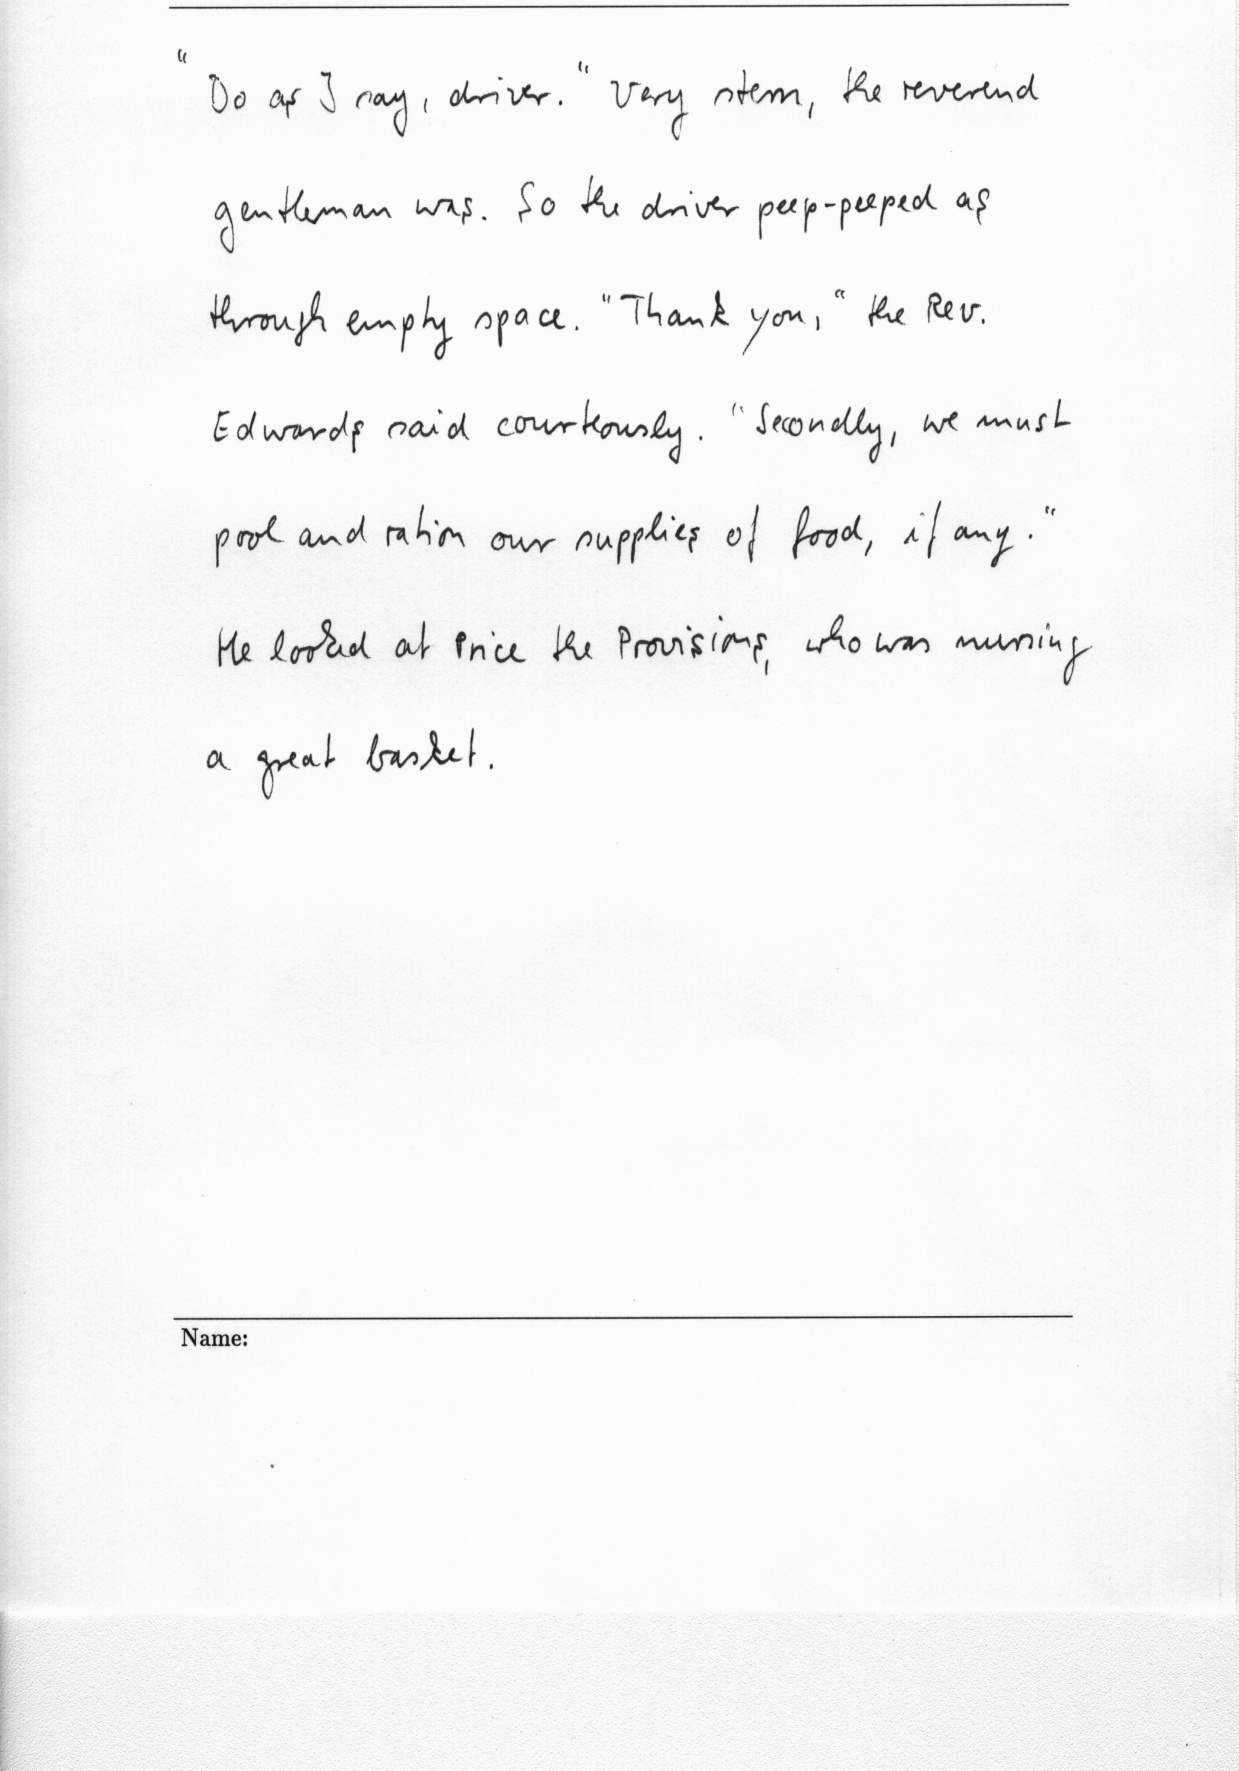 "Do as I say, driver." Very stern, the reverend
gentleman was. So the driver peep-peeped as
through empty space. "Thank you," the Rev.
Edwards said courteously. "Secondly, we must
pool and ration our supplies of food, if any."
He looked at Price the Provisions, who was nursing
a great basket.
Name: